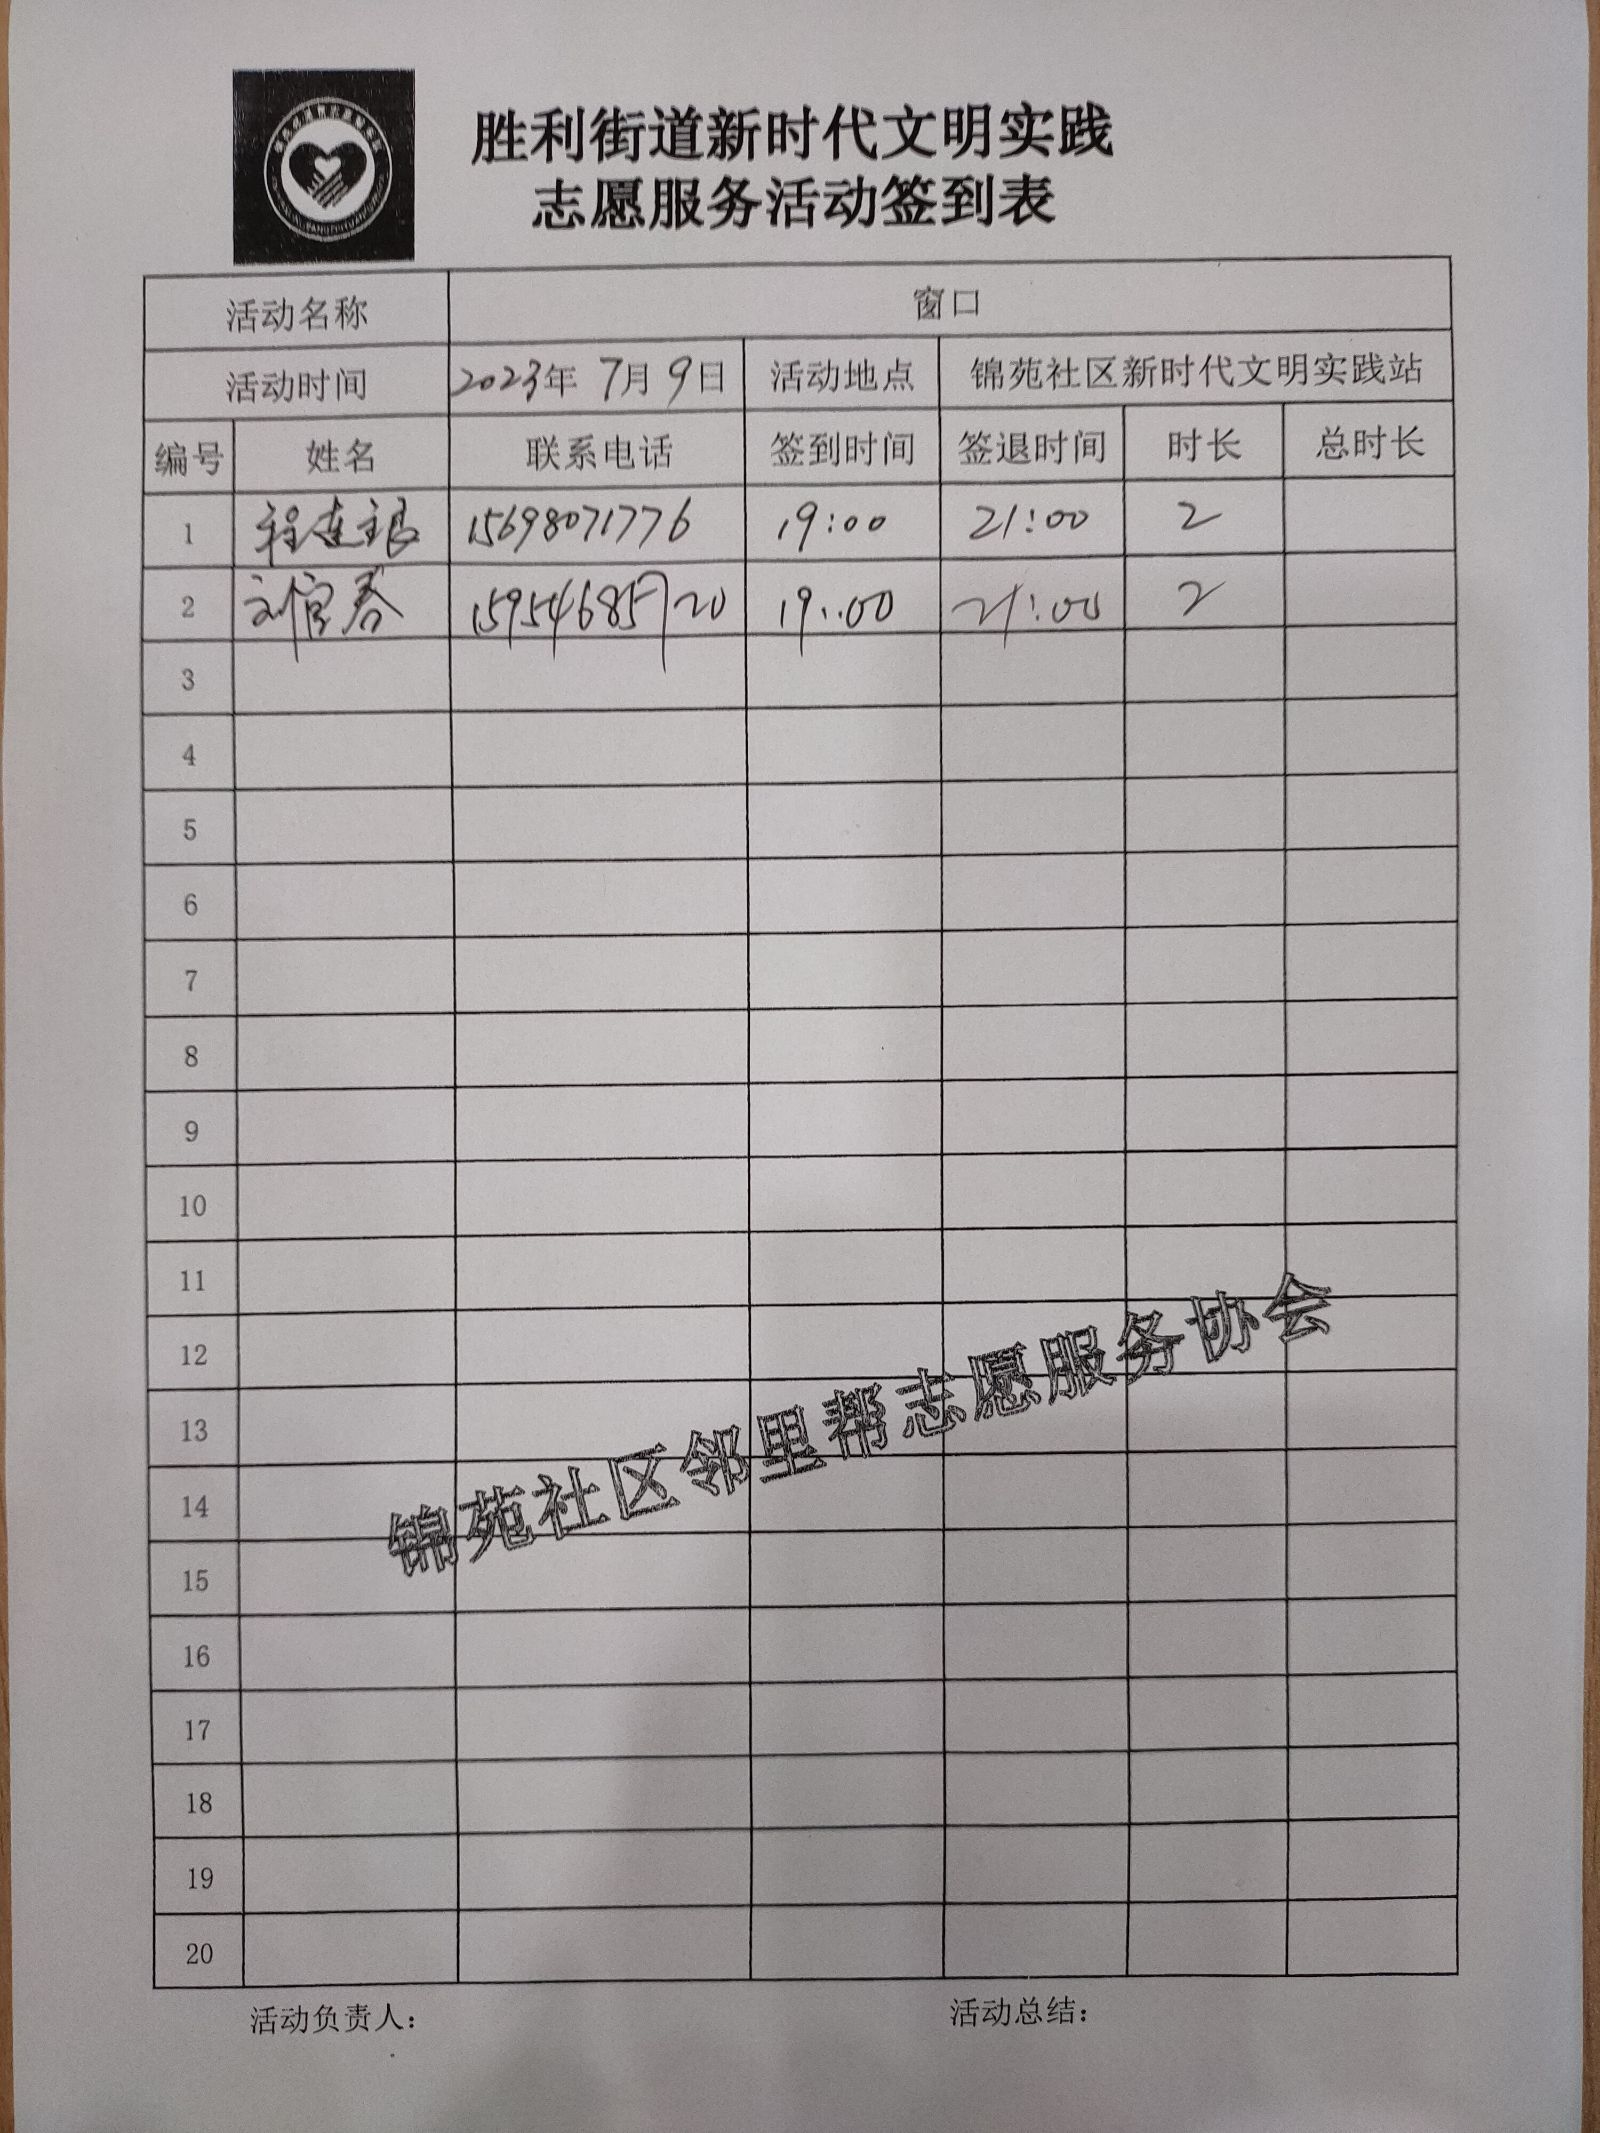 胜利街道新时代文明实践
志愿服务活动签到表
活动名称 窗口
活动时间 2023年 7月 9日 活动地点 锦苑社区新时代文明实践站
编号 姓名 联系电话 签到时间 签退时间 时长 总时长
1 程连银 15698071776 19:00 21:00 2
2 刘官春 15954685720 19:00 21:00 2
3
4
5
6
7
8
9
10
11
12
13
14
15
16
17
18
19
20
锦苑社区邻里帮志愿服务协会
活动负责人： 活动总结：